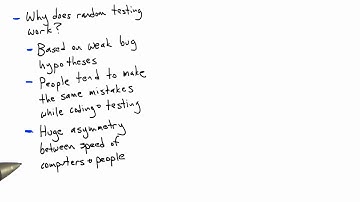 - Why does random testing
work?
- Based on weak bug
hypotheses
- People tend to make
the same mistakes
while coding + testing
- Huge asymmetry
between speed of
computers + people